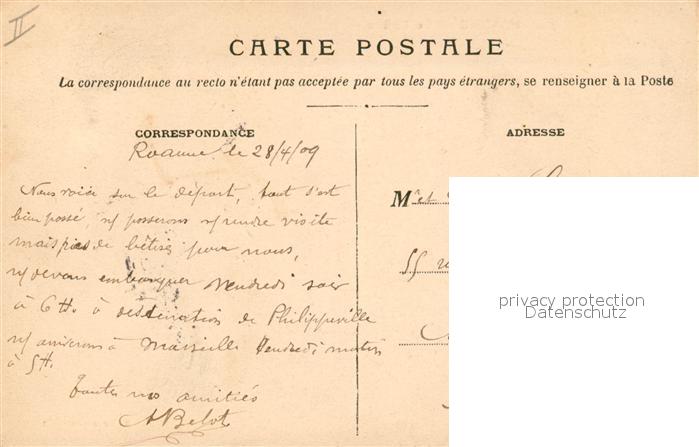 II
CARTE POSTALE
La correspondance au recto n'étant pas acceptée par tous les pays étrangers, se renseigner à la Poste
CORRESPONDANCE
Roanne le 28/4/09
Nous voici sur le départ, tout s'est
bien passé, n/ passerons n/ rendre visite
mais pas de bêtises pour nous,
n/ devons embarquer Vendredi soir
à 6 H. à destination de Philippeville
n/ arriverons à Marseille Vendredi matin
à 5 H.
Toutes nos amitiés
A Belot
ADRESSE
M r et
55 r
privacy protection
Datenschutz